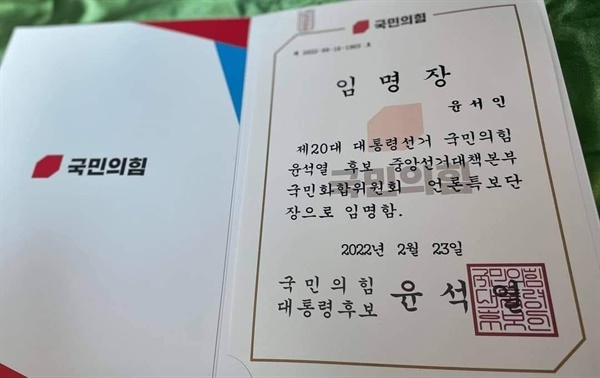 국민의힘
국민의힘
임명장
윤서인
제20대 대통령선거 국민의힘
윤석열 후보 중앙선거대책본부
국민화합위원회 언론특보단
장으로 임명함.
2022년 2월 23일
국민의힘
대통령후보 윤석열